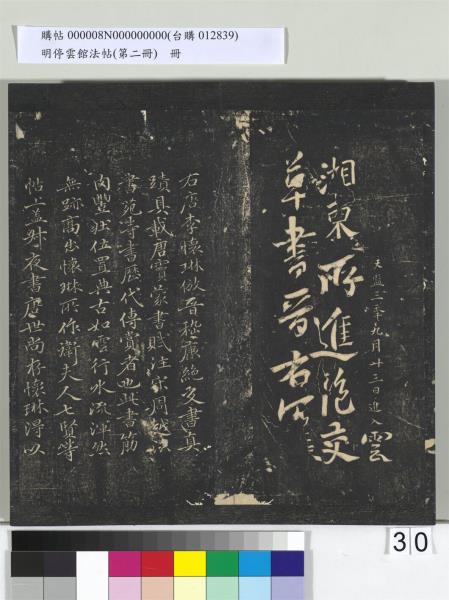 購帖 000008N000000000(台購 012839)
明停雲館法帖(第二冊)　冊
天監三年九月廿三日進入
雲
湘東所進絕交
草書晉右
右唐李懷琳倣晉嵇康絕交書真
蹟具載唐竇蒙書賦注宋周越法
書苑等書歷代傳賞者也此書筋
肉豐壯位置典古如雲行水流渾然
無跡高出懷琳所作衛夫人七賢等
帖上蓋叔夜書唐世尚存懷琳得以
30